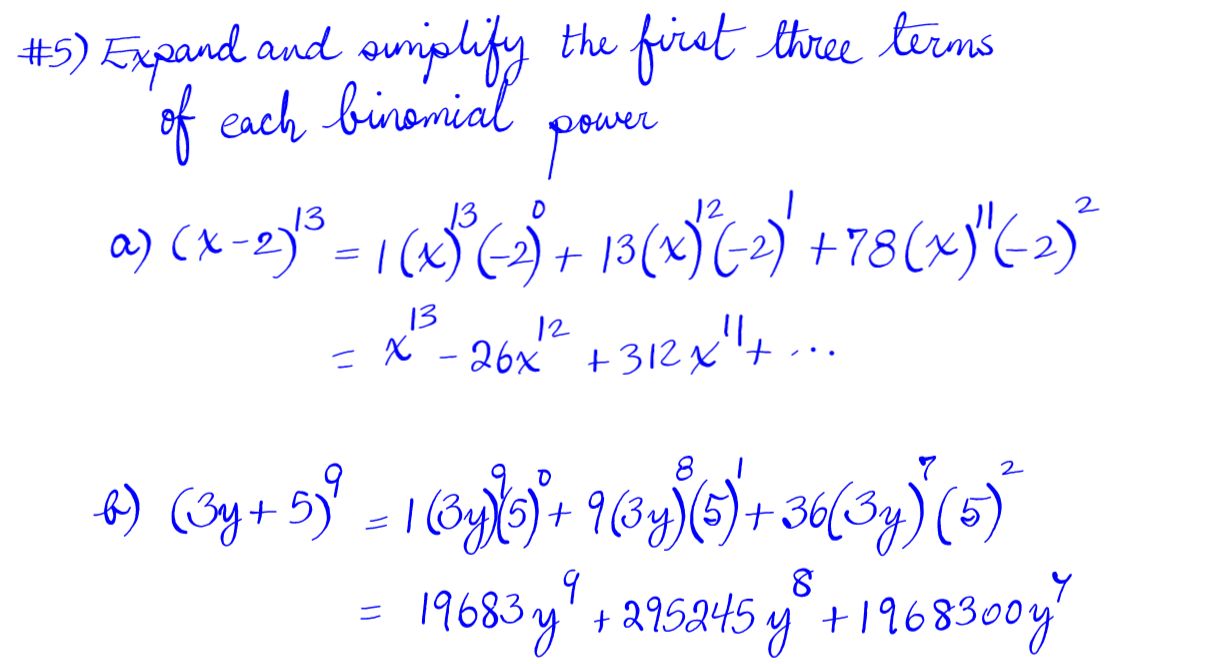 #5) Expand and simplify the first three terms
of each binomial power
a) (x-2)¹³ = 1(x)¹³(-2)⁰ + 13(x)¹²(-2)¹ + 78(x)¹¹(-2)²
= x¹³ - 26x¹² + 312x¹¹ + ...
b) (3y+5)⁹ = 1(3y)⁹(5)⁰ + 9(3y)⁸(5)¹ + 36(3y)⁷(5)²
= 19683y⁹ + 295245y⁸ + 1968300y⁷